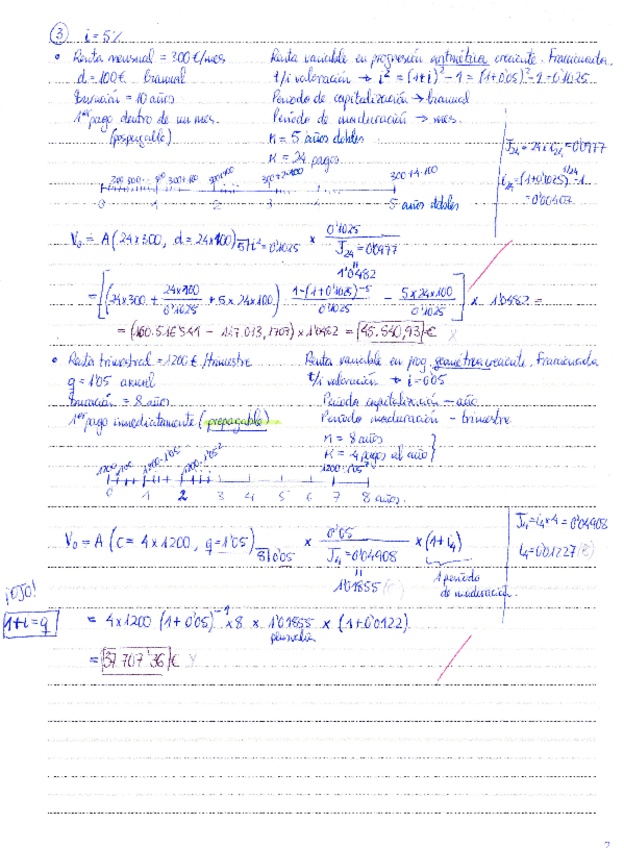 ③ i = 5%
• Renta mensual = 300 €/mes
d = 100 € bianual
Duración = 10 años
1er pago dentro de un mes.
(pospagable)
Renta variable en progresión aritmética creciente. Fraccionada.
t/i valoración → i² = (1+i)² - 1 = (1+0'05)² - 1 = 0'1025
Periodo de capitalización → bianual
Periodo de maduración → mes.
n = 5 años dobles
K = 24 pagos
J24 = 24 × i24 = 0'0977
i24 = (1+0'1025)^1/24 - 1
= 0'00407
300+4·100
0 1 2 3 4 5 años dobles
V0 = A (24×300, d = 24×100) 5⅂ i² = 0'1025 × 0'1025 / J24 = 0'0977
1'0482
= [(24×300 + 24×100 / 0'1025 + 5×24×100) · 1-(1+0'1025)^-5 / 0'1025 - 5×24×100 / 0'1025] × 1'0482 =
= (160.516'541 - 117.073,1707) × 1'0482 = 45.540,93 €
• Renta trimestral = 1200 €/trimestre
q = 1'05 anual
Duración = 8 años
1er pago inmediatamente (prepagable)
Renta variable en prog. geométrica creciente. Fraccionada
t/i valoración → i = 0'05
Periodo capitalización – año
Periodo maduración – trimestre
n = 8 años
K = 4 pagos al año
1200 1200 1200·1'05 1200·1'05² 1200·1'05⁷
0 1 2 3 4 5 6 7 8 años.
J4 = i4 × 4 = 0'04908
i4 = 0'01227 (c)
V0 = A (c = 4×1200, q = 1'05) 8⅂ 0'05 × 0'05 / J4 = 0'04908 × (1+i4)
1'01855 (c)
1 periodo
de maduración
¡OJO!
1+i = q
= 4×1200 (1+0'05)^-1 × 8 × 1'01855 × (1+0'0122)
= 37707'36 €